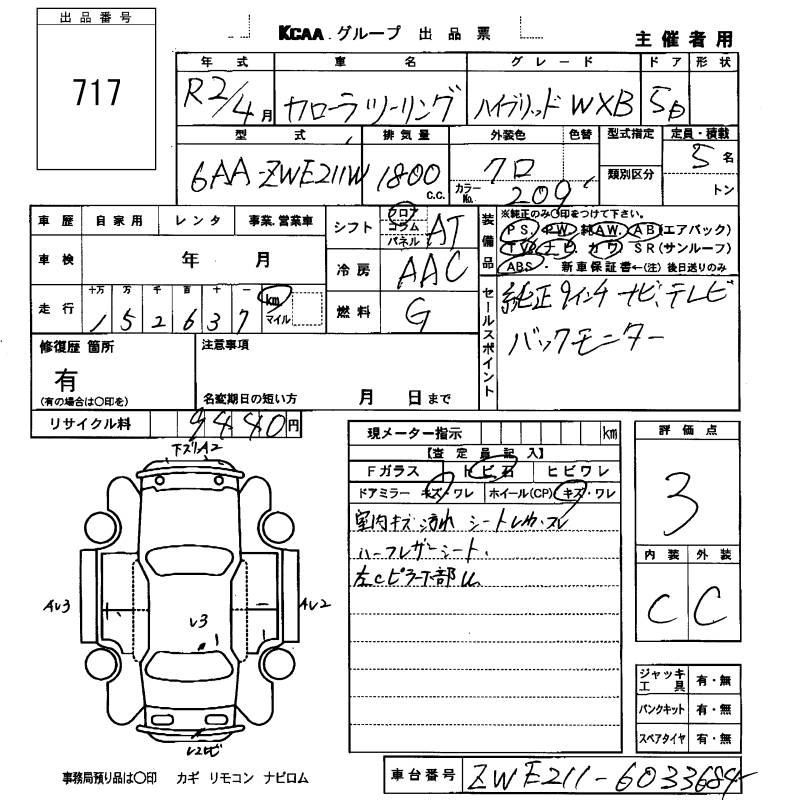 出品番号
717
KCAA グループ 出品票
主催者用
年式 車名 グレード ドア 形状
R2/4月 カローラツーリング ハイブリッド WXB 5D
型式 排気量 外装色 色替 型式指定 定員・積載
6AA-ZWE211W 1800 c.c. クロ カラーNo. 209 類別区分 5名 トン
車歴 自家用 レンタ 事業・営業車
車検 年 月
走行 十万 万 千 百 十 一 km マイル
1 5 2 6 3 7
シフト フロア コラム パネル AT
冷房 AAC
燃料 G
装備品
※純正のみ〇印をつけて下さい。
PS. PW. 純AW. AB(エアバック)
TV. ナビ. カワ SR(サンルーフ)
ABS. 新車保証書←(注)後日送りのみ
セールスポイント
純正9インチナビ、テレビ
バックモニター
修復歴 箇所
有
(有の場合は〇印を)
注意事項
名変期日の短い方 月 日まで
リサイクル料 9440円
現メーター指示 km
【査定員記入】
Fガラス トビ石 ヒビワレ
ドアミラー キズ・ワレ ホイール(CP) キズ・ワレ
室内キズ 汚れ シート
ハーフレザーシート、
左Cピラー下部U
評価点
3
内装 外装
C C
ジャッキ工具 有・無
パンクキット 有・無
スペアタイヤ 有・無
下ズリA2
AU3
AU2
U3
事務局預り品は〇印 カギ リモコン ナビロム
車台番号 ZWE211-6033684